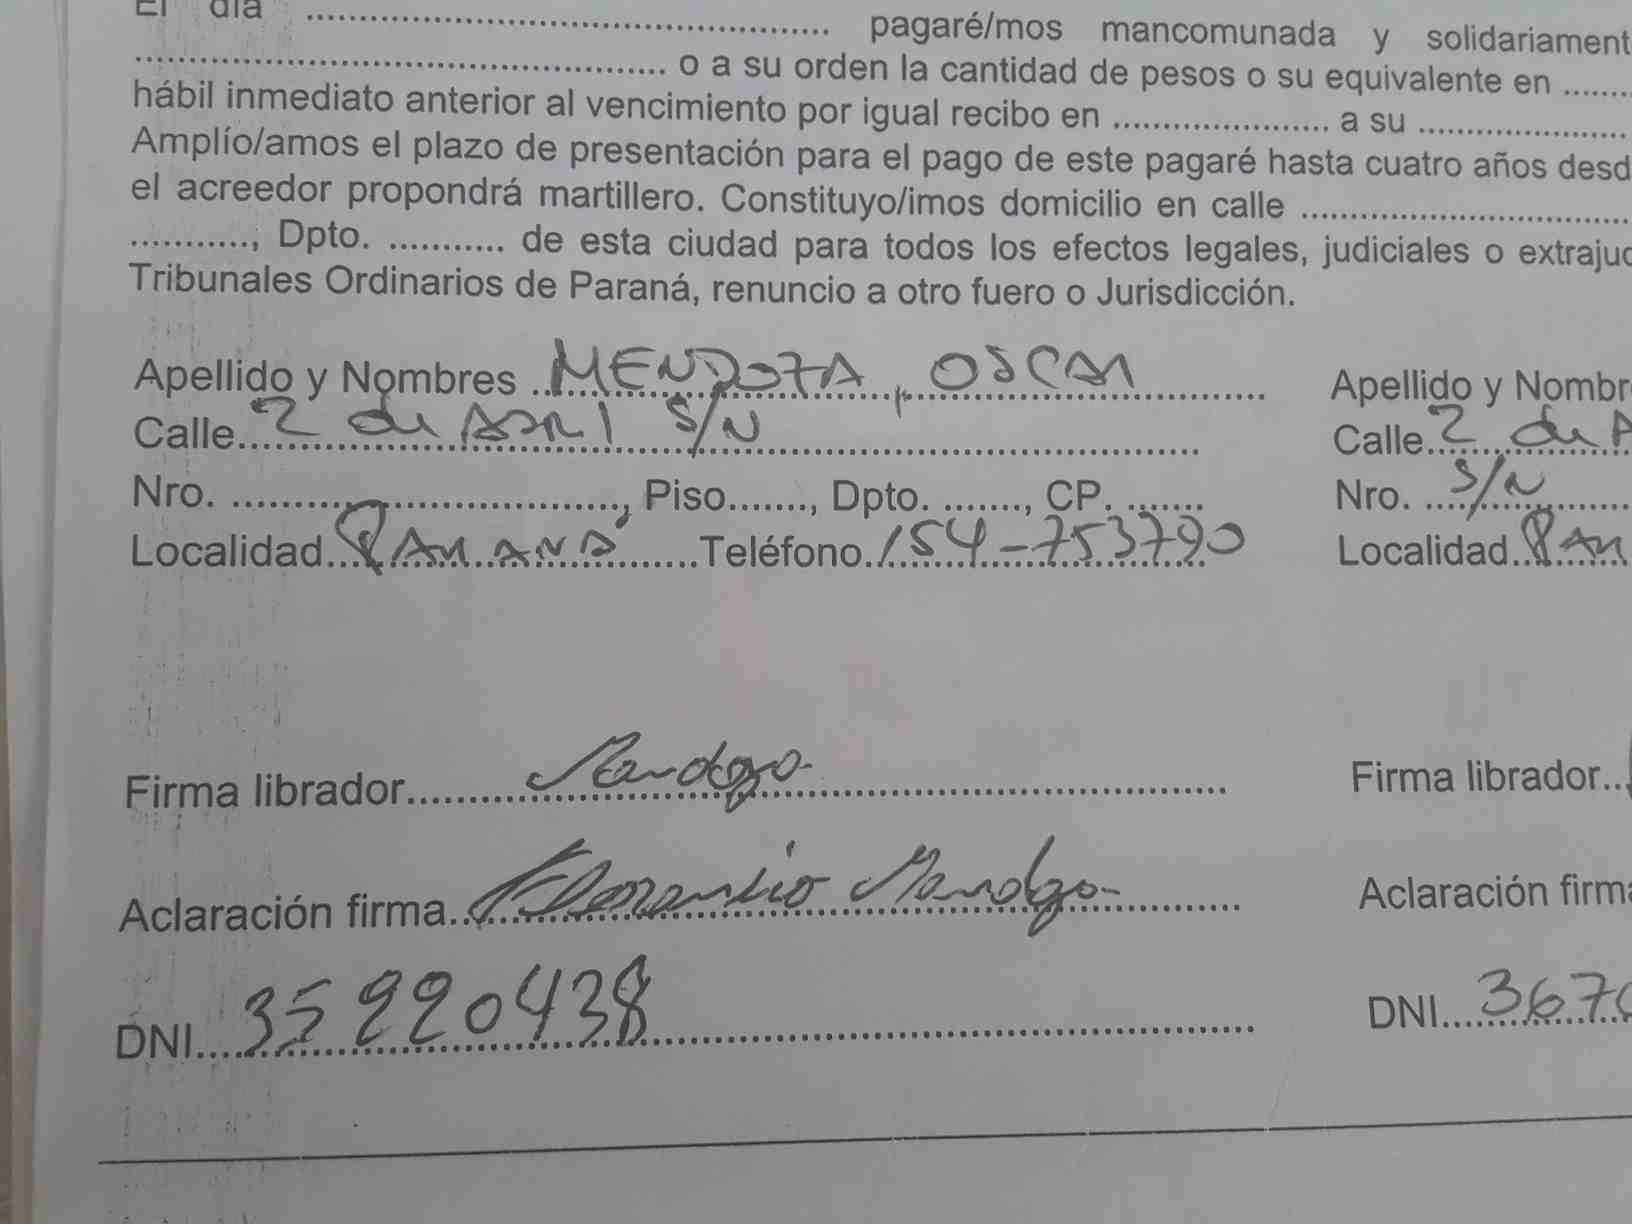 El día .......... pagaré/mos mancomunada y solidariament
.......... o a su orden la cantidad de pesos o su equivalente en ..........
hábil inmediato anterior al vencimiento por igual recibo en .......... a su ..........
Amplío/amos el plazo de presentación para el pago de este pagaré hasta cuatro años desd
el acreedor propondrá martillero. Constituyo/imos domicilio en calle ..........
..........., Dpto. ........... de esta ciudad para todos los efectos legales, judiciales o extrajud
Tribunales Ordinarios de Paraná, renuncio a otro fuero o Jurisdicción.
Apellido y Nombres MENDOZA, OSCAR
Calle 2 de ABRIL S/N
Nro. .........., Piso......., Dpto. ......., CP. .......
Localidad PARANÁ Teléfono 154-753790
Firma librador Mendoza
Aclaración firma Mendoza
DNI 35220438
Apellido y Nombr
Calle 2 de A
Nro. S/N
Localidad PAR
Firma librador
Aclaración firma
DNI 367